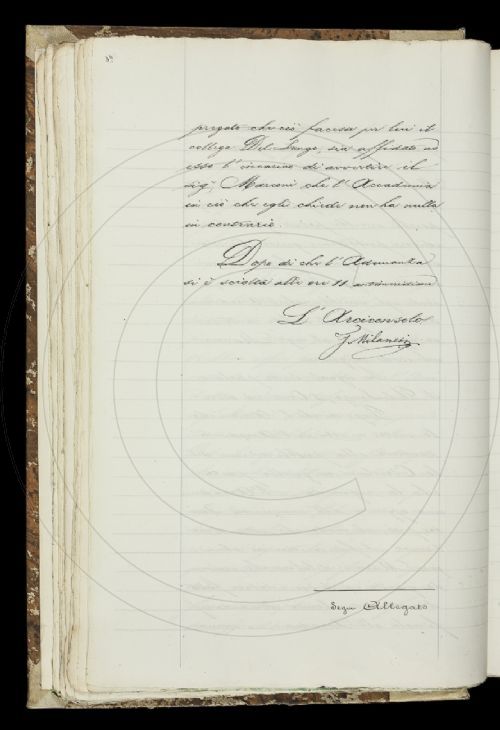 pregato che ciò facesse per lui il
collega Del Lungo, sia affidato ad
esso l'incarico di avvertire il
sig.r Marconi che l'Accademia
in ciò che egli chiede non ha nulla
in contrario.
Dopo di che l'Adunanza
si è sciolta alle ore 11 antimeridiane
L'Arciconsolo
G. Milanesi
Segue Allegato